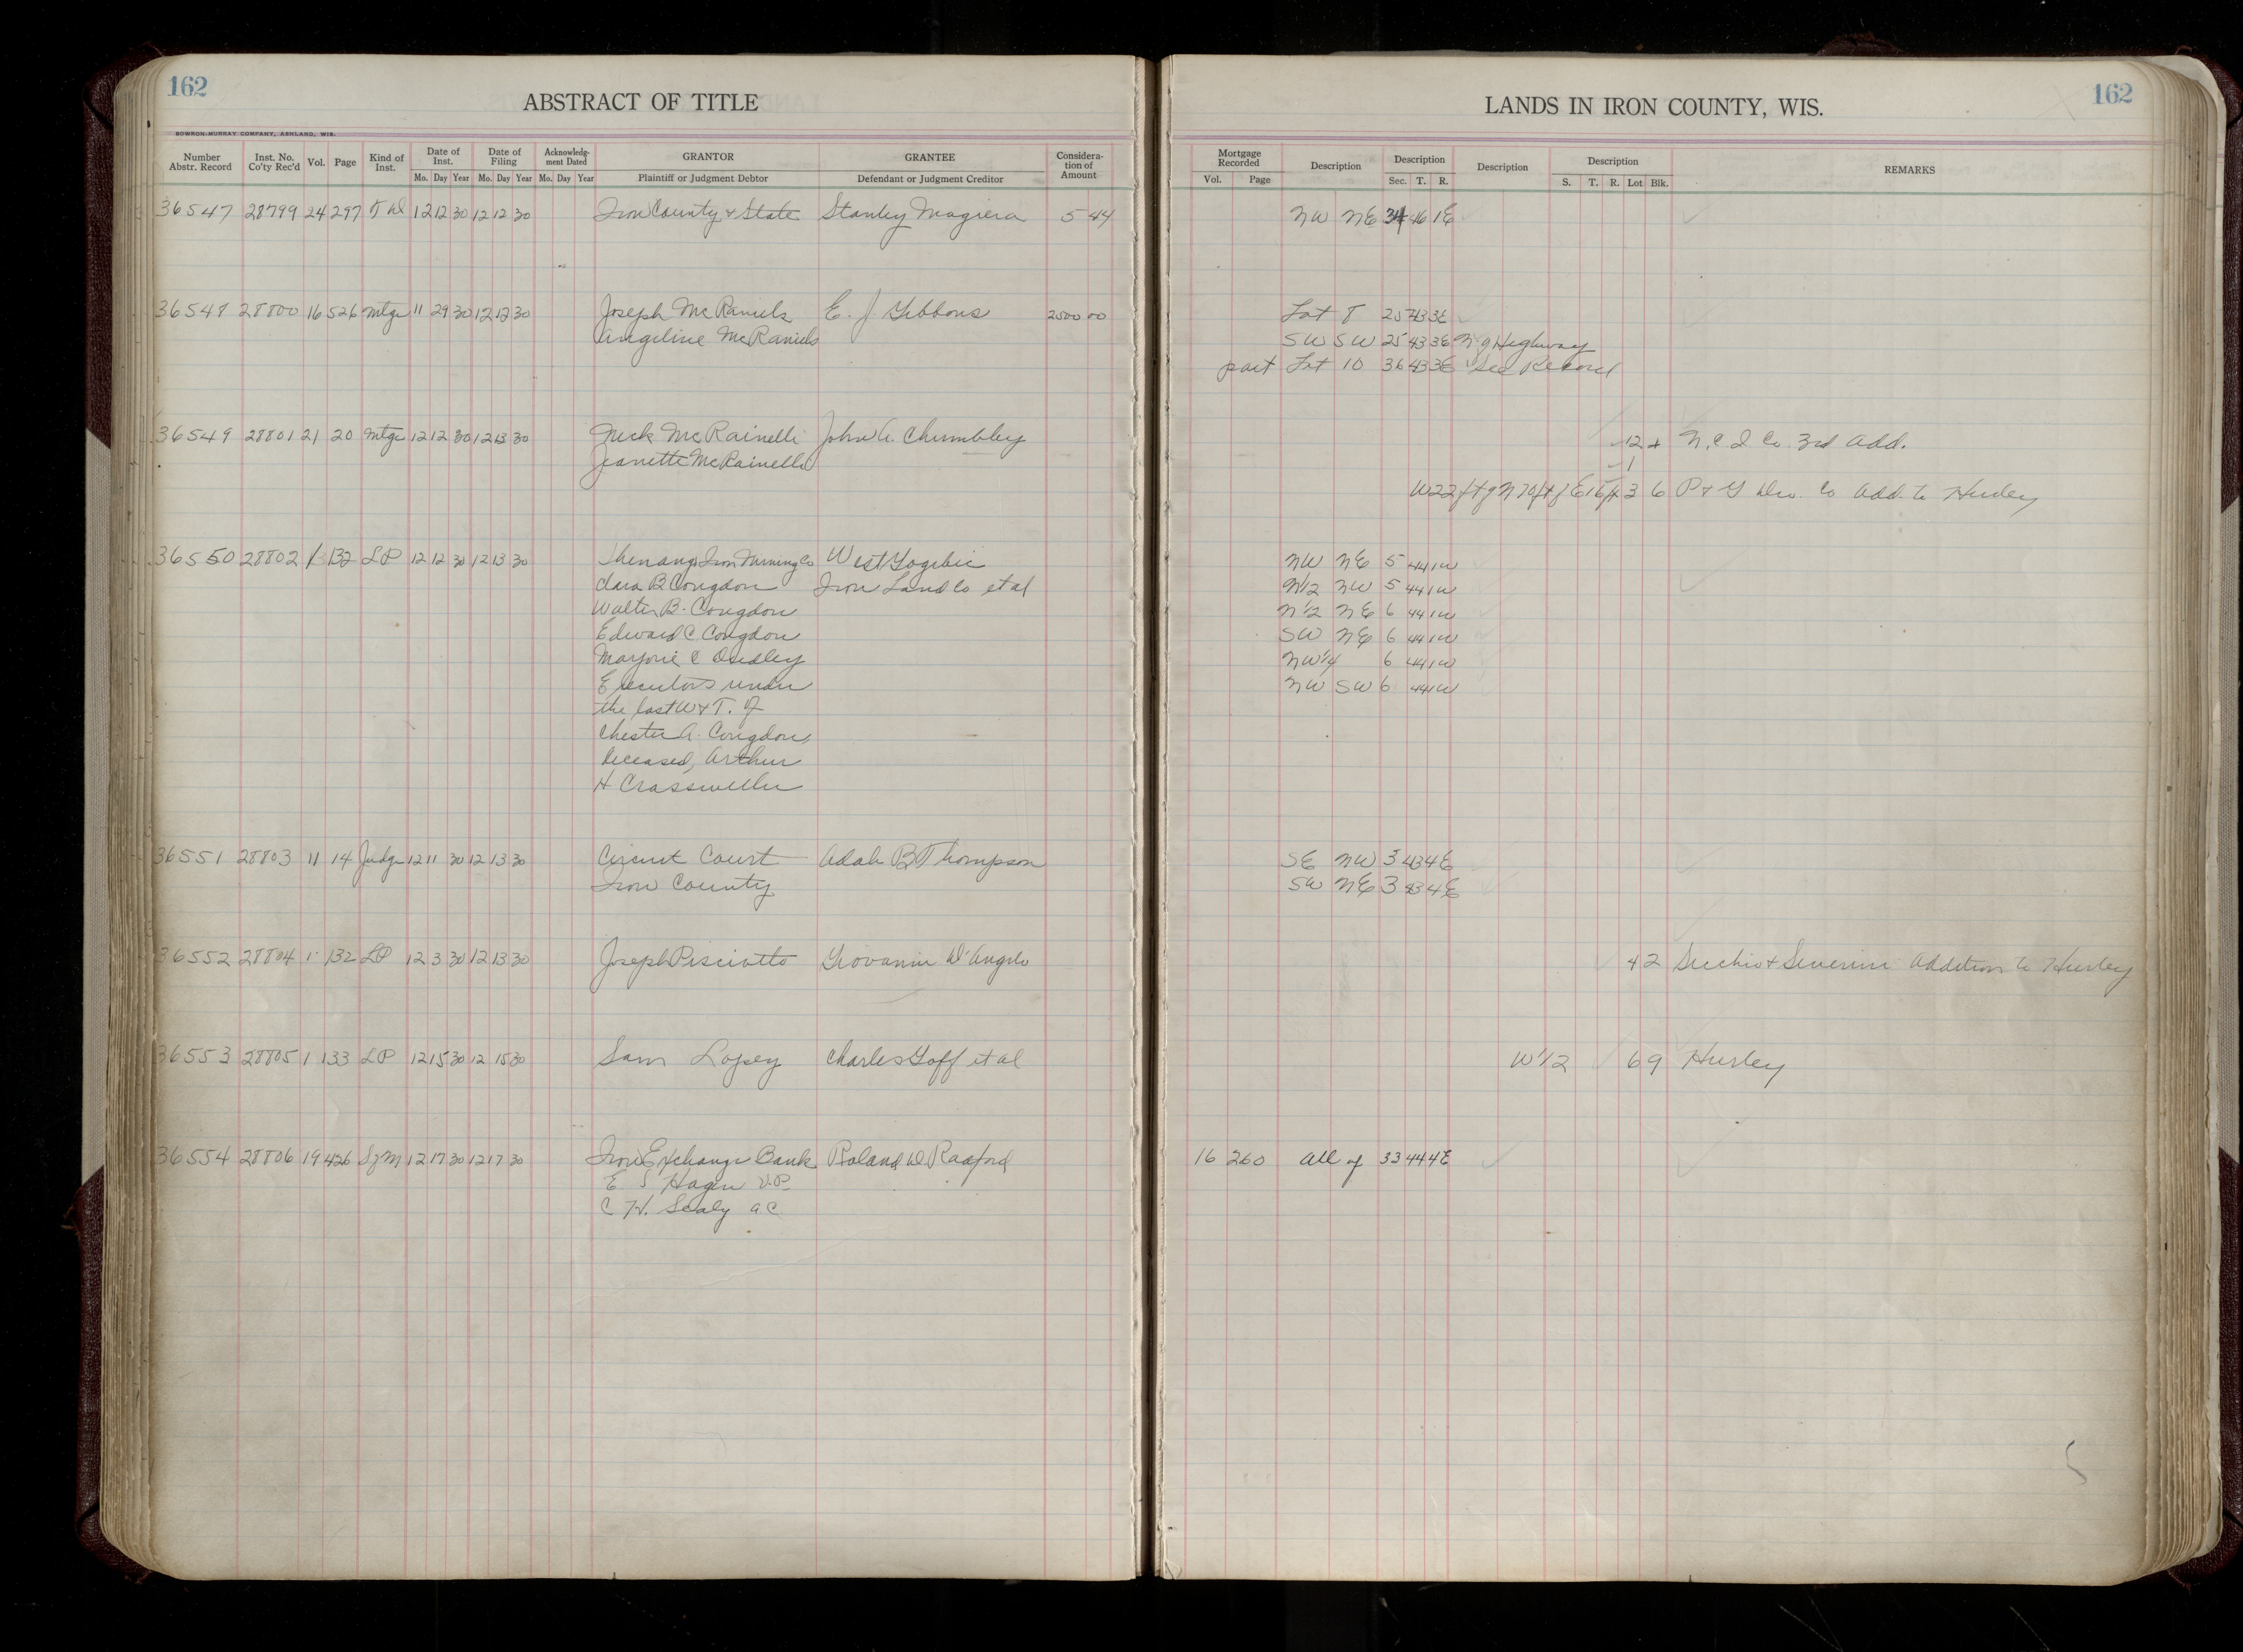 162
ABSTRACT OF TITLE
BOWRON-MURRAY COMPANY, ASHLAND, WIS.
Number Abstr. Record
Inst. No. Co'ty Rec'd
Vol.
Page
Kind of Inst.
Date of Inst.
Mo. Day Year
Date of Filing
Mo. Day Year
Acknowledg-ment Dated
Mo. Day Year
GRANTOR
Plaintiff or Judgment Debtor
GRANTEE
Defendant or Judgment Creditor
Considera-tion of Amount
36547 28799 24 297 12 12 30 12 12 30 Iron County & State Stanley Magiera 5 44
36548 28800 16 526 Mtge 11 29 30 12 12 30 Joseph McRaniels E. J. Gibbons 2500 00
Angeline McRaniels
36549 28801 21 20 Mtge 12 12 30 12 13 30 McRainelli John A. Chumbley
Jeanette McRainelli
36550 28802 132 LP 12 12 30 12 13 30 Iron Mining Co West Gogebic
Clara B Congdon Iron Land Co et al
Walter B. Congdon
Edward C. Congdon
Marjorie C Dudley
Executors under
the last W & T. of
Chester A. Congdon,
deceased, Arthur
H Crassweller
36551 28803 11 14 Judge 12 11 30 12 13 30 Circuit Court Adah B Thompson
Iron County
36552 28804 1 132 LP 12 3 30 12 13 30 Joseph Pisciotto Giovanni D'Angelo
36553 28805 1 133 LP 12 15 30 12 15 30 Sam Lopey Charles Goff et al
36554 28806 19 426 12 17 30 12 17 30 Iron Exchange Bank Roland D. Radford
E. S Hagen V.P.
C H. Sealy A C
162
LANDS IN IRON COUNTY, WIS.
Mortgage Recorded
Vol. Page
Description
Description
Sec. T. R.
Description
Description
S. T. R. Lot Blk.
REMARKS
NW NE 34 46 1E
Lot 8 25 43 3E
SW SW 25 43 3E N of Highway
part Lot 10 36 43 3E See Record
12 4 N. C I Co. 3rd Add.
1
W22 ft of N70 ft of E 3 6 P & G Co Add. to Hurley
NW NE 5 44 1W
N1/2 NW 5 44 1W
N1/2 NE 6 44 1W
SW NE 6 44 1W
NW1/4 6 44 1W
NW SW 6 44 1W
SE NW 3 43 4E
SW NE 3 43 4E
4 2 Secchio & Severini Addition to Hurley
W1/2 6 9 Hurley
16 260 All of 33 44 4E